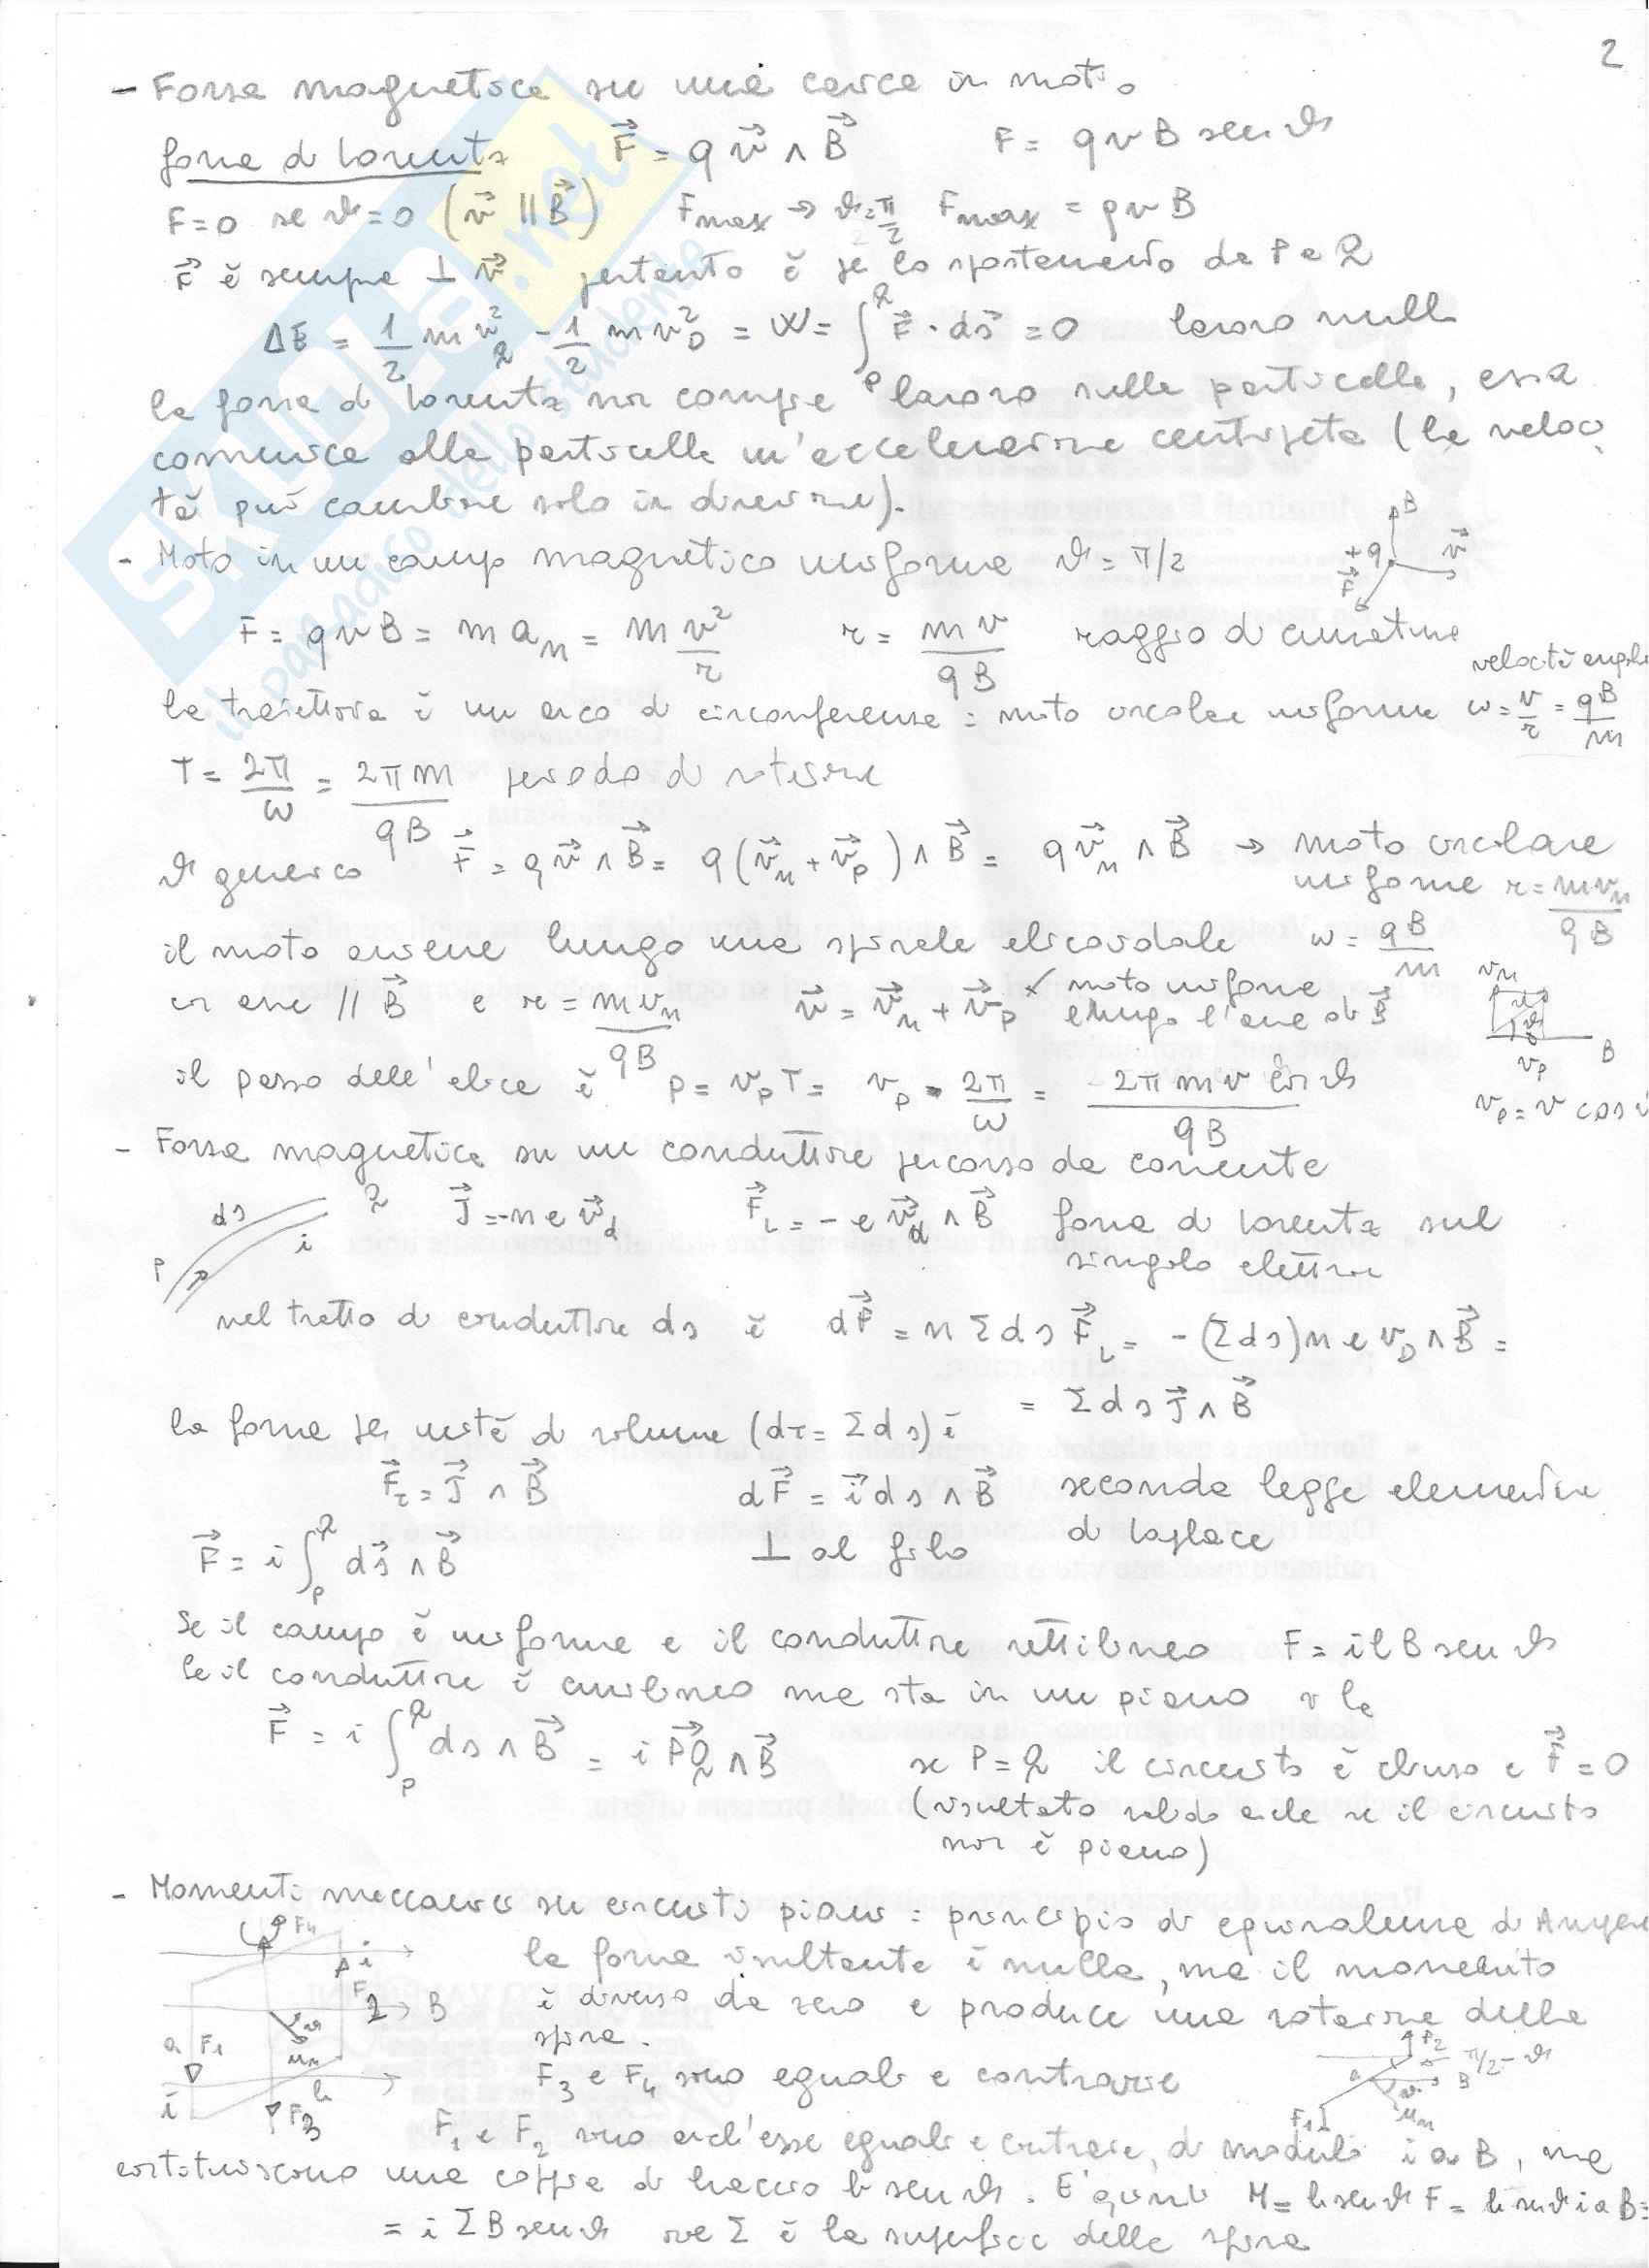 2
- Forza magnetica su una carica in moto
forza di Lorentz F⃗ = q v⃗ ∧ B⃗ F = q v B sen ϑ
F=0 se ϑ=0 (v⃗ ∥ B⃗) Fmax → ϑ=π/2 Fmax = q v B
F⃗ è sempre ⊥ v⃗ pertanto è per lo spostamento da P a Q
ΔE = 1/2 m v²_Q - 1/2 m v²_P = W = ∫_P^Q F⃗ · ds⃗ = 0 lavoro nullo
la forza di Lorentz non compie lavoro sulla particella, essa
comunica alla particella un'accelerazione centripeta (la veloci
tà può cambiare solo in direzione).
- Moto in un campo magnetico uniforme ϑ = π/2
B +q v⃗ F⃗
F = q v B = m a_n = m v²/r r = mv/qB raggio di curvatura
la traiettoria è un arco di circonferenza : moto circolare uniforme velocità angolare ω = v/r = qB/m
T = 2π/ω = 2πm/qB periodo di rotazione
ϑ generico F⃗ = q v⃗ ∧ B⃗ = q (v⃗_n + v⃗_p) ∧ B⃗ = q v⃗_n ∧ B⃗ → moto circolare
uniforme r = mv_n/qB
il moto avviene lungo una spirale elicoidale ω = qB/m
con asse ∥ B⃗ e r = mv_n/qB v⃗ = v⃗_n + v⃗_p moto uniforme
lungo l'asse di B⃗
v_n v ϑ v_p B
il passo dell'elica è p = v_p T = v_p · 2π/ω = 2π m v cos ϑ/qB
v_p = v cos
- Forza magnetica su un conduttore percorso da corrente
ds Q P i J⃗ = -n e v⃗_d F⃗_L = - e v⃗_d ∧ B⃗ forza di Lorentz sul
singolo elettrone
nel tratto di conduttore ds è dF⃗ = n Σ ds F⃗_L = - (Σ ds) n e v_D ∧ B⃗ =
= Σ ds J⃗ ∧ B⃗
la forza per unità di volume (dτ = Σ ds) è
F⃗_τ = J⃗ ∧ B⃗ dF⃗ = i⃗ ds ∧ B⃗ seconda legge elementare
di Laplace
F⃗ = i ∫_P^Q ds⃗ ∧ B⃗ ⊥ al filo
Se il campo è uniforme e il conduttore rettilineo F = i l B sen ϑ
Se il conduttore è curvilineo ma sta in un piano si ha
F⃗ = i ∫_P^Q ds ∧ B⃗ = i PQ⃗ ∧ B⃗ se P = Q il circuito è chiuso e F⃗ = 0
(risultato valido anche se il circuito
non è piano)
- Momenti meccanici su circuiti piani : principio di equivalenza di Ampere
la forza risultante è nulla, ma il momento
è diverso da zero e produce una rotazione della
spira.
F4 i F2 B a F1 ϑ u_n b i F3
F3 e F4 sono eguali e contrarie
F2 π/2-ϑ B ϑ u_n F1
F1 e F2 sono anch'esse eguali e contrarie, di modulo i a B, ma
costituiscono una coppia di braccio b sen ϑ. E' quindi M = b sen ϑ F = b sen ϑ i a B =
= i Σ B sen ϑ ove Σ è la superficie della spira
SKUOLA.net
il paradiso dello studente